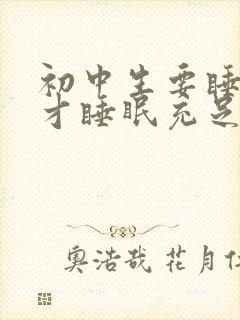 初中生要睡
才睡眠充足
奥浩哉 花月仁